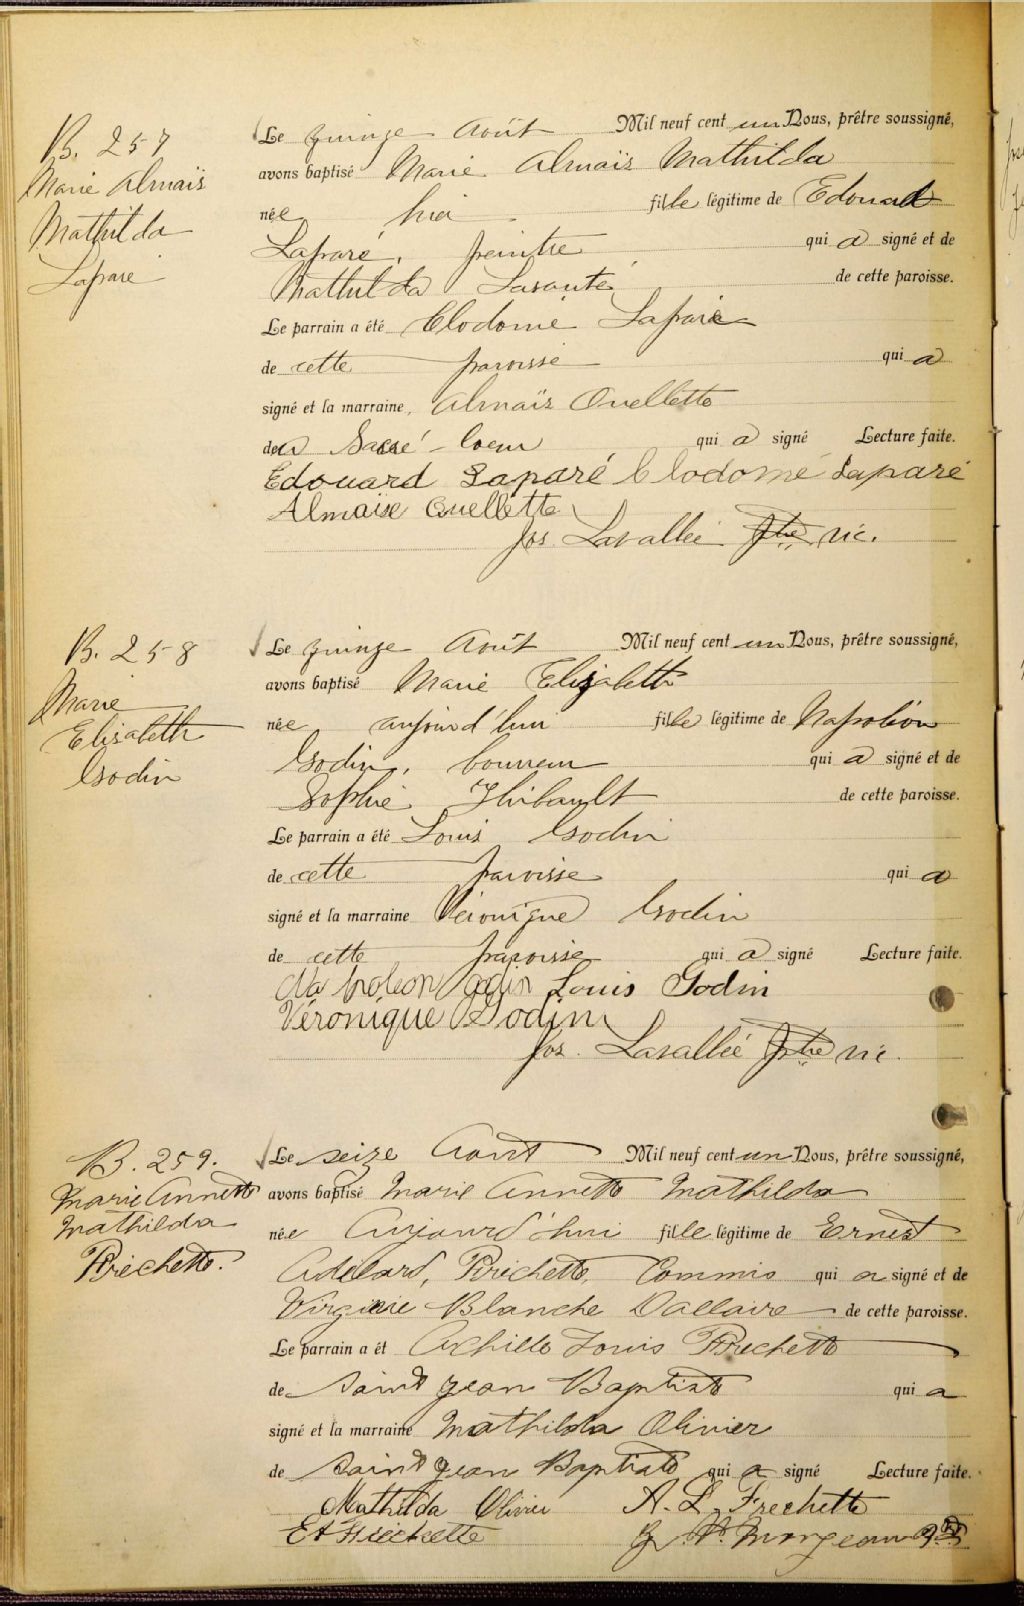 B. 257
Marie Almaïs
Mathilda
Laparé
Le quinze Août Mil neuf cent un Nous, prêtre soussigné,
avons baptisé Marie Almaïs Mathilda
née hier fille légitime de Edouard
Laparé, peintre qui a signé et de
Mathilda Lasanté de cette paroisse.
Le parrain a été Clodomé Laparé
de cette paroisse qui a
signé et la marraine, Almaïs Ouellette
de Sacré-Coeur qui a signé Lecture faite.
Edouard Laparé Clodomé Laparé
Almaïse Ouellette
Jos. Lavallée Ptre vic.
B. 258
Marie
Elisabeth
Godin
Le quinze Août Mil neuf cent un Nous, prêtre soussigné,
avons baptisé Marie Elizabeth
née aujourd'hui fille légitime de Napoléon
Godin, bourreur qui a signé et de
Sophie Thibault de cette paroisse.
Le parrain a été Louis Godin
de cette paroisse qui a
signé et la marraine Véronique Godin
de cette paroisse qui a signé Lecture faite.
Napoleon Godin Louis Godin
Véronique Godin
Jos. Lavallée Ptre vic.
B. 259.
Marie Annette
Mathilda
Fréchette.
Le seize Août Mil neuf cent un Nous, prêtre soussigné,
avons baptisé Marie Annette Mathilda
née Aujourd'hui fille légitime de Ernest
Adélard, Fréchette, Commis qui a signé et de
Virginie Blanche Dallaire de cette paroisse.
Le parrain a ét Achille Louis Fréchette
de Saint Jean Baptiste qui a
signé et la marraine Mathilda Olivier
de Saint Jean Baptiste qui a signé Lecture faite.
Mathilda Olivier A. L. Frechette
EA Fréchette